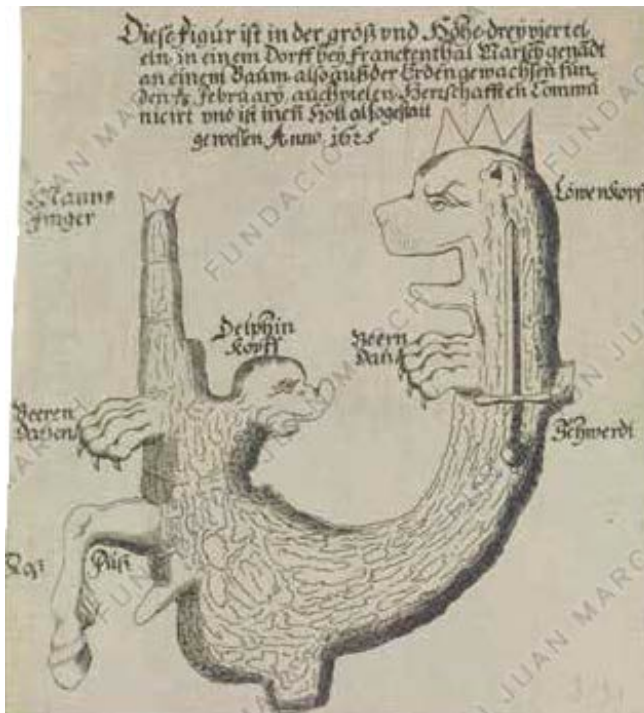 Diese Figúr ist in der größ vnd Höhe dreÿviertel
eln in einem Dorff beÿ Franckenthal Marseÿ genädt
an einem Baúm also aúß der Erden gewachsen fun
den Februarÿ aúch vielen Herrschafften Commú
nicirt vnd ist inen Holl also gestalt
gewessen Anno 1625
Manns
finger
Löwenkopff
Delphin
Kopff
Beern
Beeren
Datzen
Schwerdt
Fúß
FUNDACIÓN JUAN MARCH